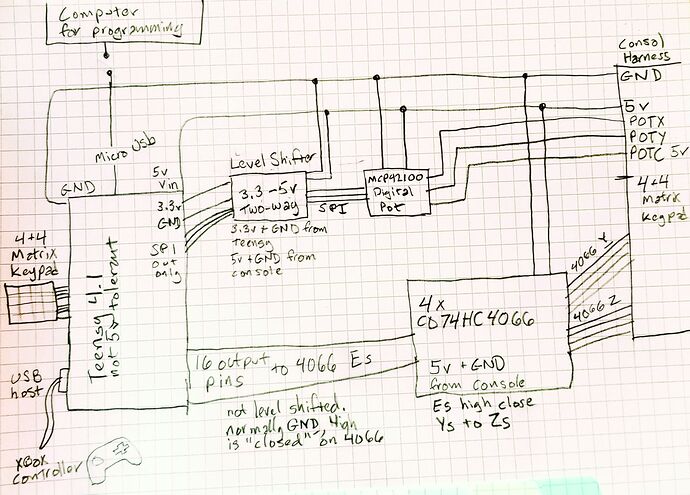 Computer
for programming
Consol
Harness
GND
5v
POTX
POTY
POTC 5v
4+4
Matrix
Keypad
Micro Usb
GND
5v
Vin
3.3v
GND
SPI
out
only
Teensy 4.1
not 5v tolerant
Level Shifter
3.3-5v
Two-way
3.3v + GND from
Teensy
5v + GND from
console
SPI
MCP42100
Digital
Pot
4+4
Matrix
Keypad
USB
host
XBox
Controller
16 output
pins
to 4066 Es
not level shifted.
normally GND, High
is "closed" on 4066
4x
CD74HC4066
5v + GND
from console
Es high close
Ys to Zs
4066 Y
4066 Z